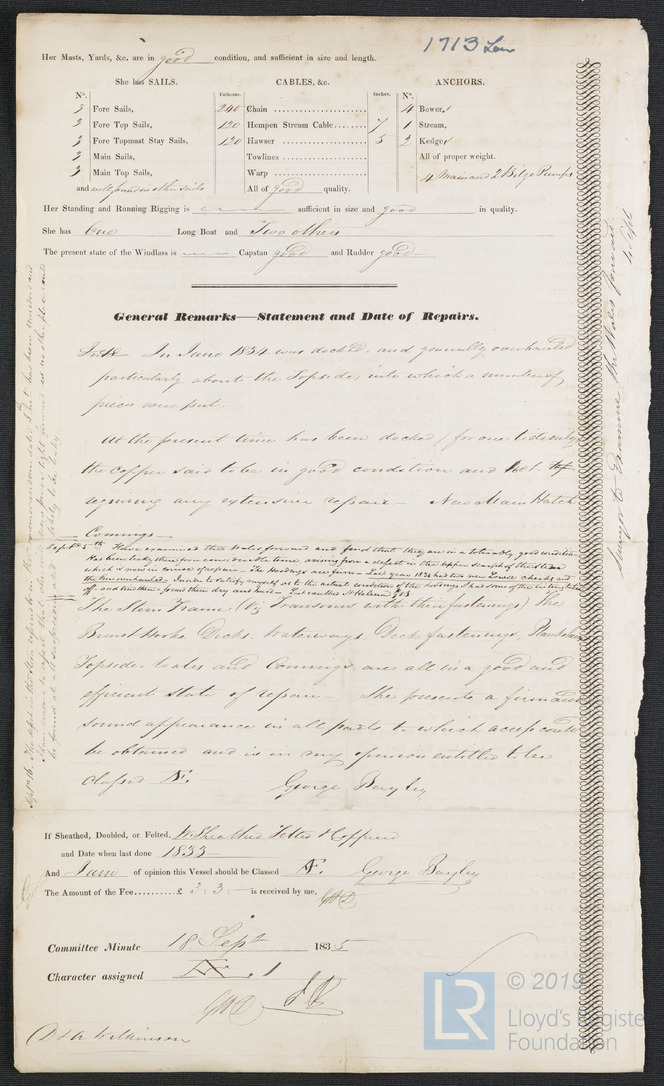 1713 Lon
Her Masts, Yards, &c. are in good condition, and sufficient in size and length.
She has SAILS.
CABLES, &c.
ANCHORS.
N°.
Fathoms.
Inches.
N°.
3 Fore Sails,
3 Fore Top Sails,
3 Fore Topmast Stay Sails,
3 Main Sails,
3 Main Top Sails,
and well found in other sails
240 Chain
120 Hempen Stream Cable 7
120 Hawser 5
Towlines
Warp
All of good quality.
4 Bower,
1 Stream,
2 Kedge
All of proper weight.
4 Main and 2 Bilge Pumps
Her Standing and Running Rigging is sufficient in size and good in quality.
She has One Long Boat and Two others
The present state of the Windlass is Capstan good and Rudder good
General Remarks—Statement and Date of Repairs.
In June 1834 was docked, and generally overhauled
particularly about the Topsides, into which a number of
pieces were put.
At the present time has been docked (for one tide only
the copper said to be in good condition and not
requiring any extensive repair — New Main Hatch
Comings
Sept 5th Have examined the Wales forward and find that they are in a tolerably good condition
Has been leaky there for some considerable time arising from a defect in the upper scarph of the Stem
which is now in course of repair — The Hoodings are firm — Last year 1834 had two new Hawse checks and
the two overhauled. In order to satisfy myself as to the actual condition of the hoodings I had some of the lining taken
off and found them dry and hard —
The Stern Frame (Viz Transoms with their fastenings) The
Breast Hooks, Decks, Waterways, Deck fastenings, Planksheer
Topsides Wales and Comings are all in a good and
efficient state of repair — She presents a firm and
sound appearance in all parts to which access could
be obtained and is in my opinion entitled to be
classed Æ.
George Bayley
If Sheathed, Doubled, or Felted, W. Sheathed Felted & Coppered
and Date when last done 1833
And I am of opinion this Vessel should be Classed Æ. George Bayley
The Amount of the Fee..........£ 3 : 3 : — is received by me,
Committee Minute 18 Sept 1835
Character assigned Æ . 1
Wilkinson
Surveyor to Examine the Wales forward.
4 Sept
© 2019
LR
Lloyd's Register
Foundation